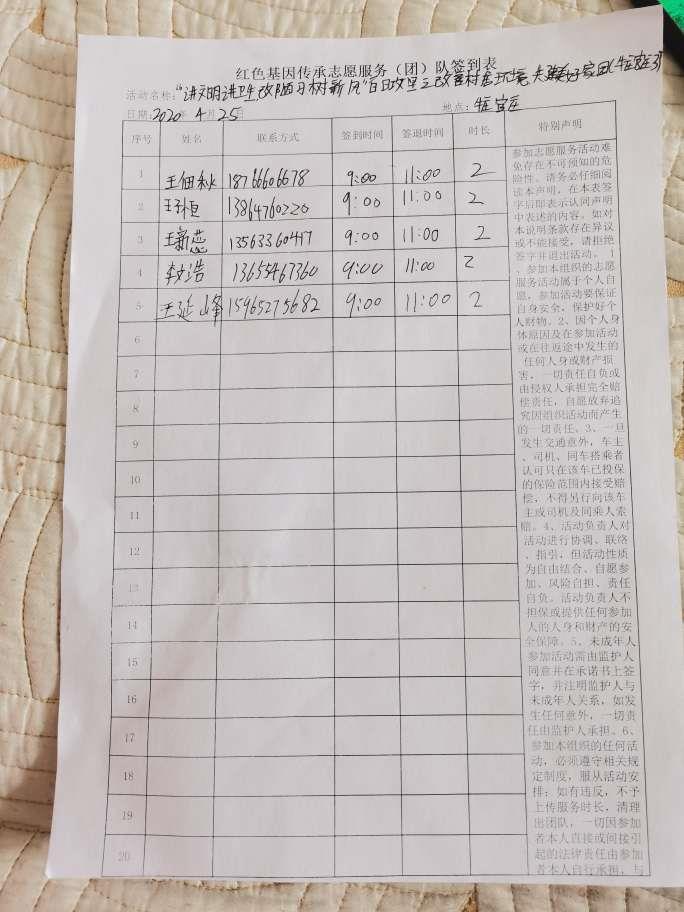 红色基因传承志愿服务（团）队签到表
活动名称：“讲文明讲卫生改陋习树新风”百日攻坚之改善村居环境 共建美好家园
日期：2020年4月25日
地点：
序号 姓名 联系方式 签到时间 签退时间 时长 特别声明
1 王佃秋 18766606678 9:00 11:00 2
2 王子恒 13864760220 9:00 11:00 2
3 王新蕊 9:00 11:00 2
4 李文浩 13655467360 9:00 11:00 2
5 王延峰 15965275682 9:00 11:00 2
6
7
8
9
10
11
12
13
14
15
16
17
18
19
20
参加志愿服务活动难
免存在不可预知的危
险性。请务必仔细阅
读本声明。在本表签
字后即表示认同声明
中表述的内容。如对
本说明条款存在异议
或不能接受，请拒绝
签字并退出活动。 1
、参加本组织的志愿
服务活动属于个人自
愿，参加活动要保证
自身安全，保护好个
人财物。2、因个人身
体原因及在参加活动
或在往返途中发生的
任何人身或财产损
害，一切责任自负或
由侵权人承担完全赔
偿责任，自愿放弃追
究因组织活动而产生
的一切责任。3、一旦
发生交通意外，车主
、司机、同车搭乘者
认可只在该车已投保
的保险范围内接受赔
偿，不得另行向该车
主或司机及同乘人索
赔。4、活动负责人对
活动进行协调、联络
、指引，但活动性质
为自由结合、自愿参
加、风险自担、责任
自负。活动负责人不
担保或提供任何参加
人的人身和财产的安
全保障。5、未成年人
参加活动需由监护人
同意并在承诺书上签
字，并注明监护人与
未成年人关系，如发
生任何意外，一切责
任由监护人承担。6、
参加本组织的任何活
动，必须遵守相关规
定制度，服从活动安
排；如有违反，不予
上传服务时长，清理
出团队，一切因参加
者本人直接或间接引
起的法律责任由参加
者本人自行承担，与